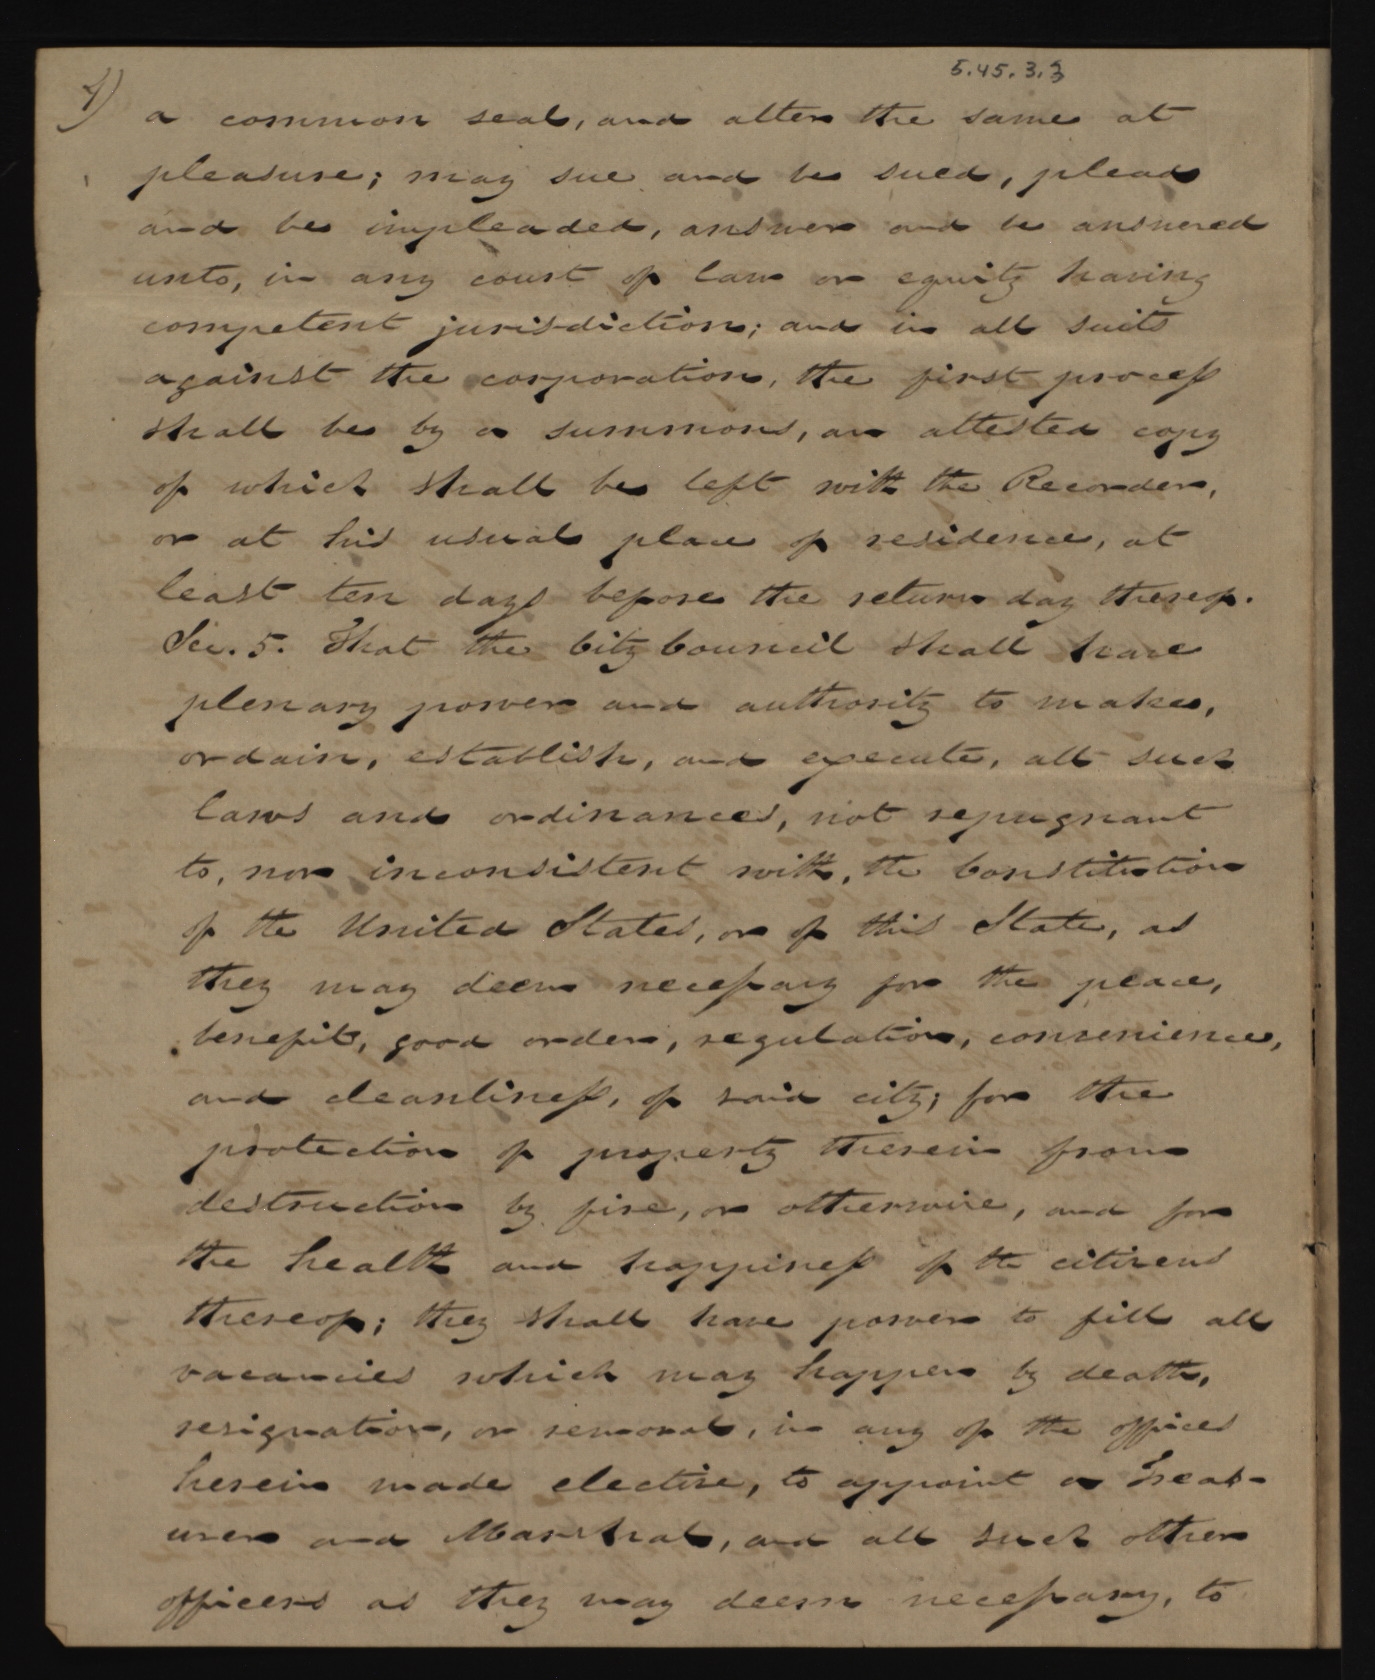 5.45.3.3
4)
a common seal, and alter the same at
pleasure; may sue and be sued, plead
and be impleaded, answer and be answered
unto, in any court of law or equity having
competent jurisdiction; and in all suits
against the corporation, the first process
shall be by a summons, an attested copy
of which shall be left with the Recorder,
or at his usual place of residence, at
least ten days before the return day thereof.
Sec. 5. That the City Council shall have
plenary power and authority to make,
ordain, establish, and execute, all such
laws and ordinances, not repugnant
to, nor inconsistent with, the Constitution
of the United States, or of this State, as
they may deem necessary for the peace,
benefit, good order, regulation, convenience,
and cleanliness, of said city; for the
protection of property therein from
destruction by fire, or otherwise, and for
the health and happiness of the citizens
thereof; they shall have power to fill all
vacancies which may happen by death,
resignation, or removal, in any of the offices
herein made elective, to appoint a Treas-
urer and Marshal, and all such other
officers as they may deem necessary, to